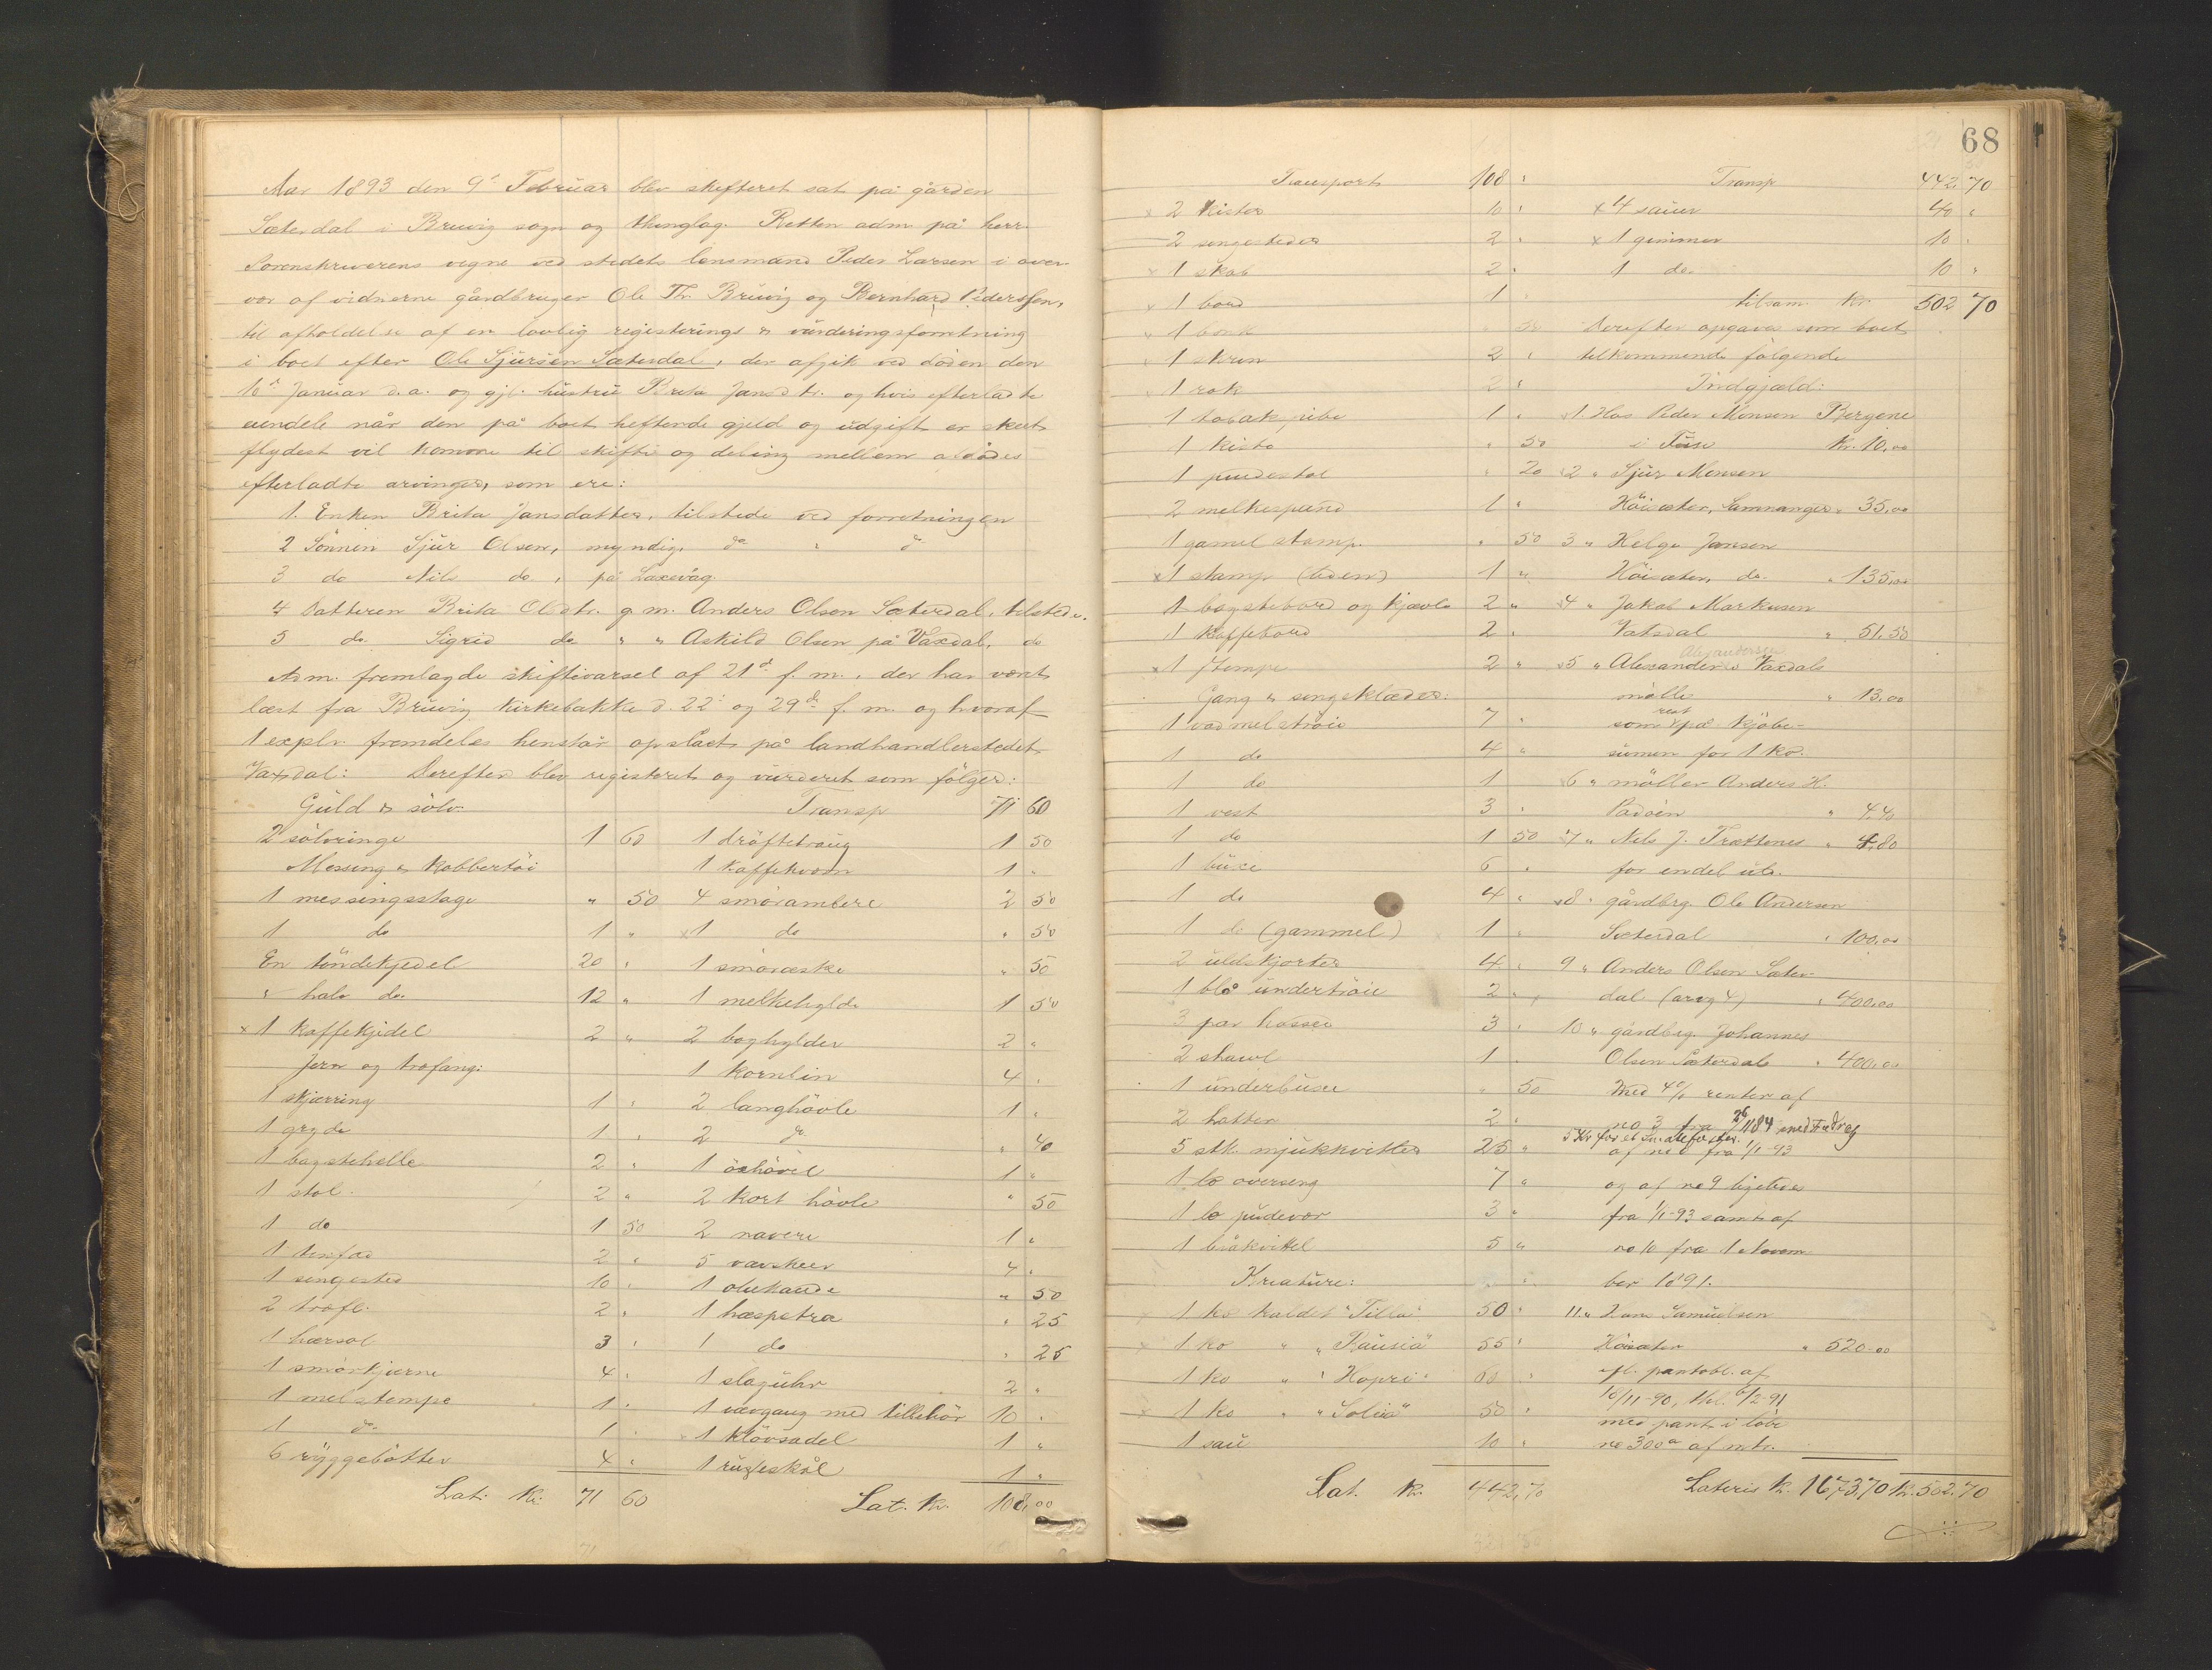 Aar 1893 den 9' Februar blev skifteret sat på gården
Sæterdal i Bruvig sogn og thinglag. Retten adm. på herr
Sorenskriverens vegne ved stedets lensmand Peder Larsen i over-
vær af vidnerne gårdbruger Ole Th. Bruvig og Bernhard Pederssen,
til afholdelse af en lovlig registrerings & vurderingsforretning
i boet efter Ole Sjursen Sæterdal, der afgik ved døden den
10' Januar d.a. og gjl. hustru Brita Jansdtr. og hvis efterladte
eiendele når den på boet heftende gjeld og udgift er skeet
flydest vil komme til skifte og deling mellem afdødes
efterladte arvinger, som ere:
1. Enken Brita Jansdatter, tilstede ved forretningen
2 Sønnen Sjur Olsen, myndig, do " do
3 do Nils do, på Laxevåg.
4 Datteren Brita Olsdtr. g. m. Anders Olsen Sæterdal, tilstede.
5 do. Sigrid do " " Askild Olsen på Vaxdal, do
Adm. fremlagde skiftevarsel af 21d f. m., der har været
læst fra Bruvig kirkebakke d. 22' og 29d f. m. og hvoraf
1 explr. fremdeles henstår opslået på landhandlerstedet
Vaxdal: Derefter blev registeret og vurderet som følger:
Guld & sølv.
2 sølvringe 1 60
Messing & Kobbertøi
1 messingstage " 50
1 do 1 "
En tøndekjedel 20 "
" halv do. 12 "
x 1 kaffekjedel 2 "
Jern og træfang:
1 skjærring 1 "
1 gryde 1 "
1 bagstehelle 2 "
1 stol. 2 "
1 do 1 50
1 tinfad 2 "
1 sengested 10 "
2 træfl. 2 "
1 hærsal 3 "
1 smørkjærne 4 "
1 melstampe 1 "
1 do 1 "
6 ryggebøtter 4 "
Lat. Kr. 71 60
Transp 71 60
1 drøftetraug 1 50
1 kaffekvern 1 "
4 smørambere 2 50
x 1 do " 50
1 smøræske " 50
1 melkehylde 1 50
2 boghylder 2 "
1 kornbin 4 "
2 langhøvle 1 "
2 do " 40
1 øxhøvel 1 "
2 kort høvle " 50
2 navere 1 "
5 vævskeer 4 "
1 oliekande " 50
1 hæspetræ " 25
1 do " 25
1 slaguhr 2 "
1 vævgang med tillehør 10 "
1 kløvsadel 1 "
1 rugeskål 1 "
Lat. Kr. 108,00
68
Transport 108 "
x 2 kister 10 "
2 sengesteder 2 "
x 1 skab 2 "
x 1 bord 1 "
1 benk " 50
1 skrin 2 "
1 rok 2 "
1 tobakpibe 1 "
1 kiste " 50
1 pudestol " 20
2 melkespand 1 "
1 gamel stamp. " 50
x 1 stamp (liden) 1 "
1 bagstebord og kjævle 2 "
1 kaffebord 2 "
x 1 stampe 2 "
Gang & sengeklæder:
1 vadmelstrøie 7 "
1 do 4 "
1 do 1 "
1 vest 3 "
1 do 1 50
1 buxe 6 "
1 do 4 "
1 do (gammel) 1 "
2 uldskjorter 4 "
1 blå undertrøie 2 "
3 par hosser 3 "
2 shawl 1 "
1 underbuxe " 50
2 hatter 2 "
5 stk. mjukkvitler 25 "
1 læ overseng 7 "
1 læ pudevær 3 "
1 bråkvittel 5 "
Kreature:
1 ko kaldet "Tilla" 50 "
1 ko " "Rausia" 55 "
1 ko " "Hopri" 60 "
1 ko " "Solva" 50 "
1 sau 10 "
Lat. Kr. 442,70
Transp 442,70
x 4 sauer 40 "
x 1 gimmer 10 "
1 do 10 "
tilsam. Kr. 502 70
Derefter opgaves som boet
tilkommende følgende
Indgjæld:
1. Hos Peder Monsen Bergene
i Fuse Kr. 10,00
2 " Sjur Monsen
Høisæter, Samnanger " 35,00
3 " Helge Jansen
Høisæter, do. " 135,00
4 " Jakob Markusen
Vatsdal " 51,50
Alexandersen
5 " Alexander Vaxdals
mølle " 13,00
rest
som på kjøbe-
sumen for 1 ko.
6 " møller Anders H.
Padøen " 4,40
7 " Nils J. Trættenes " 4,80
for endel uld.
8 " gårdbrg. Ole Andersen
Sæterdal " 100,00
9 " Anders Olsen Sæter-
dal (arvg 4) " 400,00
10 " gårdbrg. Johannes
Olsen Sæterdal " 400,00
Med 4% renter af
no 3 fra 26/1184 med Fradrag
5 Kr for et
af no 8 fra 1/1-93
og af no 9 ligeledes
fra 1/1-93 samt af
no 10 fra 1 Novem
ber 1891.
11 " Lars Samuelsen
Høisæter " 520.00
efl. pantobl. af
10/11-90, thl. 6/2-91
med pant i løbe
no 300a af mtr.
Lateris Kr. 1673,70 Kr. 502.70